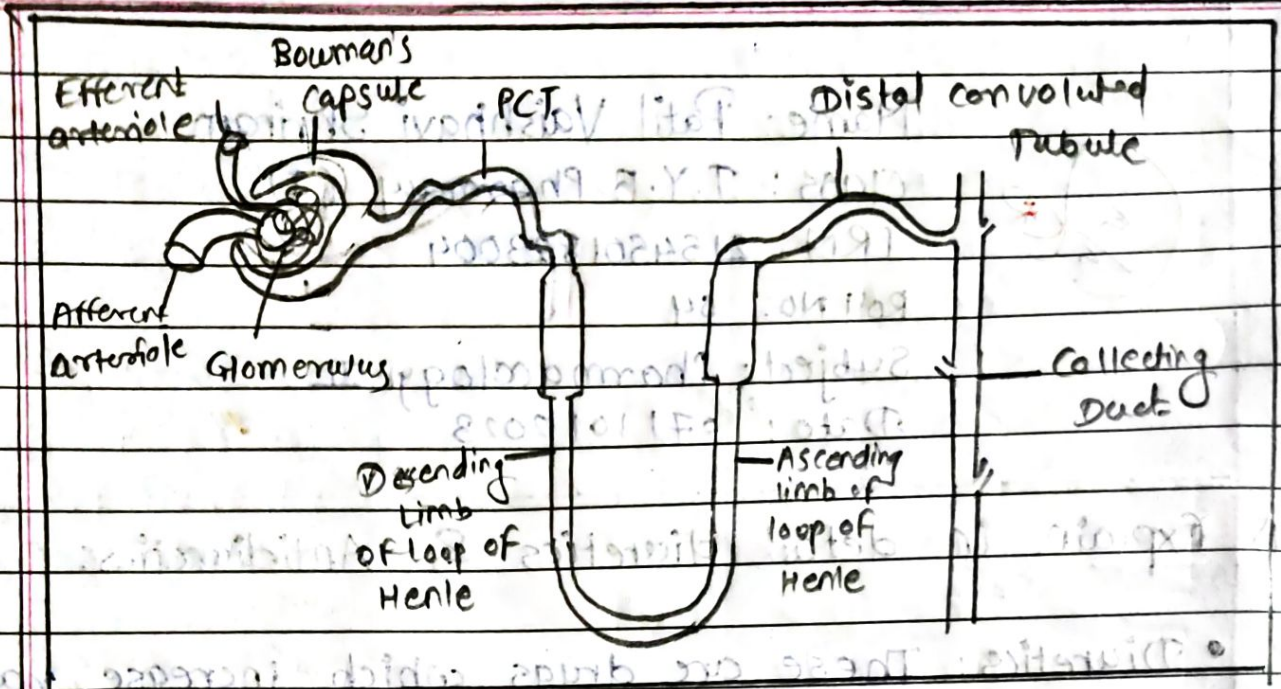 Bowman's
capsule
Efferent
arteriole
PCT
Distal convoluted
Tubule
Afferent
arteriole
Glomerulus
Collecting
Duct
Desending
Limb
of loop of
Henle
Ascending
limb of
loop of
Henle